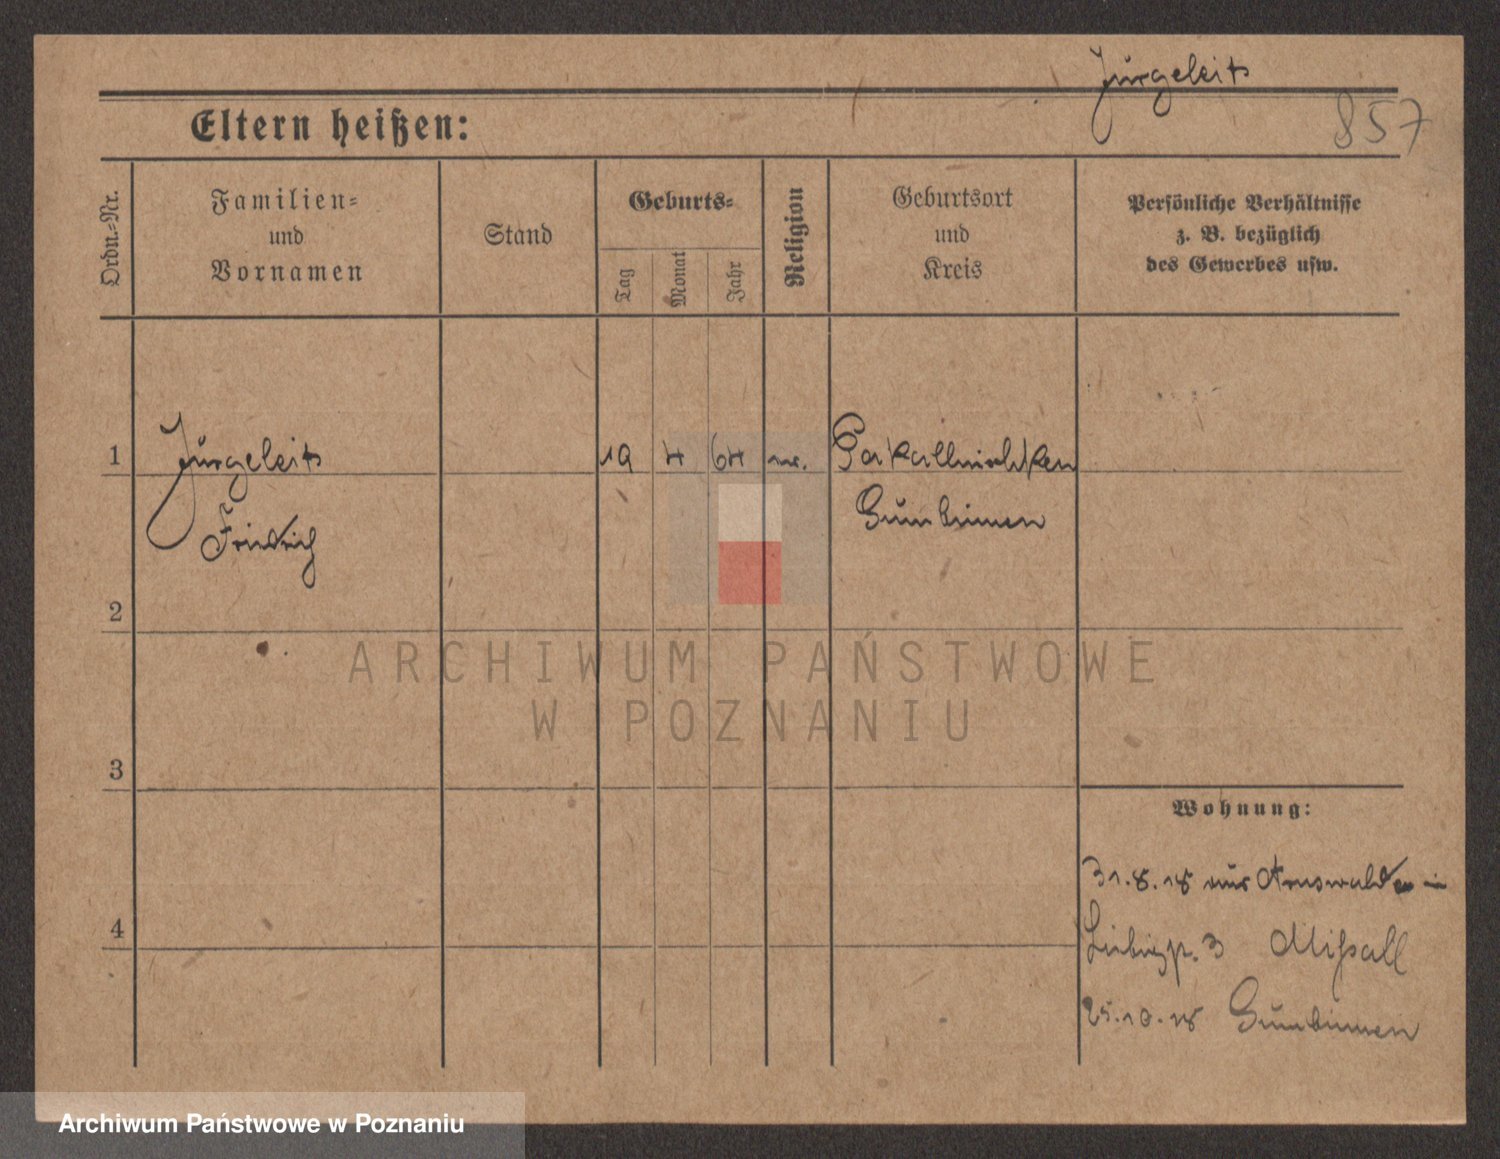 Jurgeleits
857
Eltern heißen:
Ordn.-Nr.
Familien-
und
Vornamen
Stand
Geburts-
Tag
Monat
Jahr
Religion
Geburtsort
und
Kreis
Persönliche Verhältnisse
z. B. bezüglich
des Gewerbes usw.
1
Jurgeleits
19 4 64
Gumbinnen
Friedrich
2
ARCHIWUM PAŃSTWOWE
W POZNANIU
3
Wohnung:
31.8.18 aus Arnswalde in
4
3 Mißall
25.10.18 Gumbinnen
Archiwum Państwowe w Poznaniu